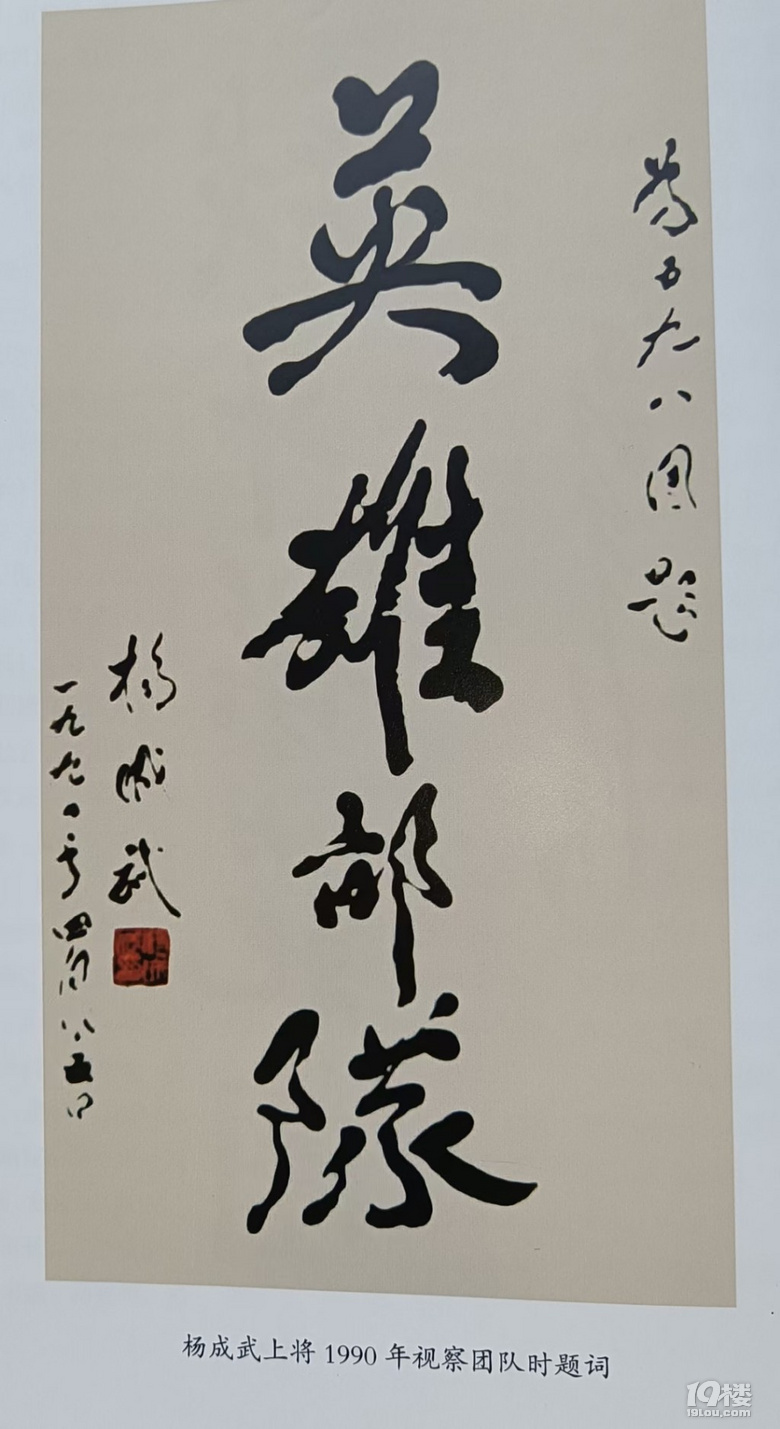 為五九八团題
英雄部隊
楊成武
一九九〇年四月五日
杨成武上将 1990 年视察团队时题词
19楼
19lou.com